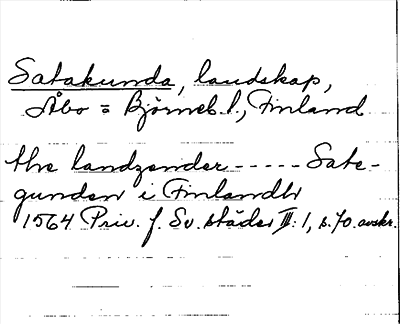 Satakunda, landskap,
Åbo = Björneb. l., Finland
the landzender ----- Sate-
gunden i Finlandh
1564 Priv. f. Sv. städer III: 1, s. 70. avskr.